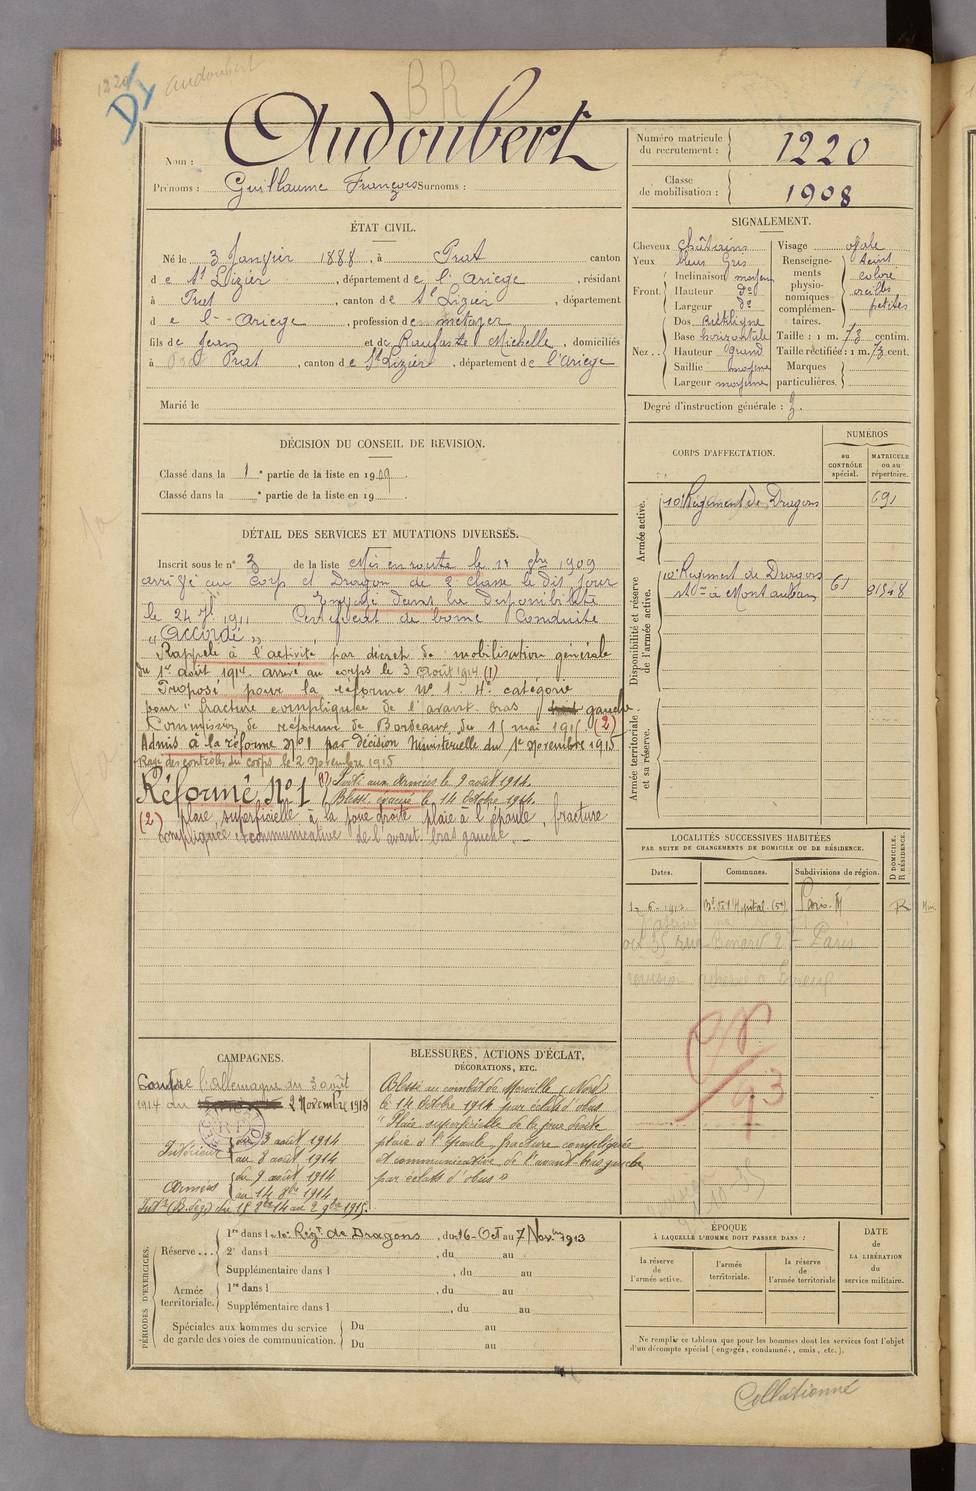 1220
Audoubert
BR
Nom : Audoubert
Prénoms : Guillaume François Surnoms :
Numéro matricule du recrutement : 1220
Classe de mobilisation : 1908
ÉTAT CIVIL.
Né le 3 Janvier 1888, à Prat canton
de St Lizier, département de l'Ariège, résidant
à Prat, canton de St Lizier, département
de l'Ariège, profession de métayer
fils de Jean et de Raufaste Michelle, domiciliés
à Prat, canton de St Lizier, département de l'Ariège
Marié le
SIGNALEMENT.
Cheveux châtains
Yeux bleus Gris
Front. Inclinaison moyen
Hauteur do
Largeur do
Nez... Dos Rectiligne
Base horizontale
Hauteur Grand
Saillie moyenne
Largeur moyenne
Visage ovale
Renseignements physionomiques complémentaires. teint coloré oreilles petites
Taille : 1 m. 73 centim.
Taille rectifiée : 1 m. 73 cent.
Marques particulières.
Degré d'instruction générale : 3.
DÉCISION DU CONSEIL DE REVISION.
Classé dans la 1e partie de la liste en 1909.
Classé dans la e partie de la liste en 19
DÉTAIL DES SERVICES ET MUTATIONS DIVERSES.
Inscrit sous le n° 3 de la liste Mis en route le 1909
arrivé au Corps et Dragon de 2e Classe le dit jour
Envoyé dans la disponibilité
le 24 7bre 1911 Certificat de bonne Conduite
"Accordé"
Rappelé à l'activité par décret de mobilisation générale
du 1er août 1914. arrivé au corps le 3 Août 1914 (1)
Proposé pour la réforme no 1 - 4e catégorie
pour "fracture compliquée de l'avant bras gauche
Commission de réforme de Bordeaux du 15 mai 1915 (2)
Admis à la réforme No 1 par décision Ministérielle du 1er Novembre 1915
Rayé des contrôles du corps le 2 Novembre 1915
Réformé No 1
(1) Parti aux armées le 9 août 1914.
Blessé, évacué le 14 Octobre 1914.
(2) plaie superficielle à la joue droite plaie à l'épaule, fracture
compliquée et communicative de l'avant bras gauche. -
CORPS D'AFFECTATION.
NUMÉROS
au CONTRÔLE spécial.
MATRICULE ou au répertoire.
Armée active.
10e Régiment de Dragons 691
Disponibilité et réserve de l'armée active.
10e Régiment de Dragons
à Montauban 61 01548
Armée territoriale et sa réserve.
LOCALITÉS SUCCESSIVES HABITÉES
PAR SUITE DE CHANGEMENTS DE DOMICILE OU DE RÉSIDENCE.
D DOMICILE; R RÉSIDENCE.
Dates.
Communes.
Subdivisions de région.
Bd de l'Hôpital (5e) Paris. R
Paris
93
CAMPAGNES.
Contre l'allemagne du 3 août
1914 au 2 Novembre 1915
Intérieur du 3 août 1914
au 8 août 1914
Armées du 9 août 1914
au 14 8bre 1914
Intr (B. de g.) du 15 8bre 14 au 2 9bre 1915.
BLESSURES, ACTIONS D'ÉCLAT,
DÉCORATIONS, ETC.
Blessé au combat de Merville (Nord)
le 14 Octobre 1914 par éclats d'obus
"Plaie superficielle de la joue droite
plaie à l'épaule, fracture compliquée
et communicative de l'avant-bras gauche
par éclats d'obus"
PÉRIODES D'EXERCICES.
Réserve... 1re dans le 10e Régt de Dragons, du 16-Oct au 7 Novbre 1913
2e dans l , du au
Supplémentaire dans l , du au
Armée territoriale. 1re dans l , du au
Supplémentaire dans l , du au
Spéciales aux hommes du service de garde des voies de communication. Du au
Du au
ÉPOQUE
À LAQUELLE L'HOMME DOIT PASSER DANS :
la réserve de l'armée active.
l'armée territoriale.
la réserve de l'armée territoriale
DATE de LA LIBÉRATION du service militaire.
Ne remplir ce tableau que pour les hommes dont les services font l'objet
d'un décompte spécial (engagés, condamnés, omis, etc.).
Collationné